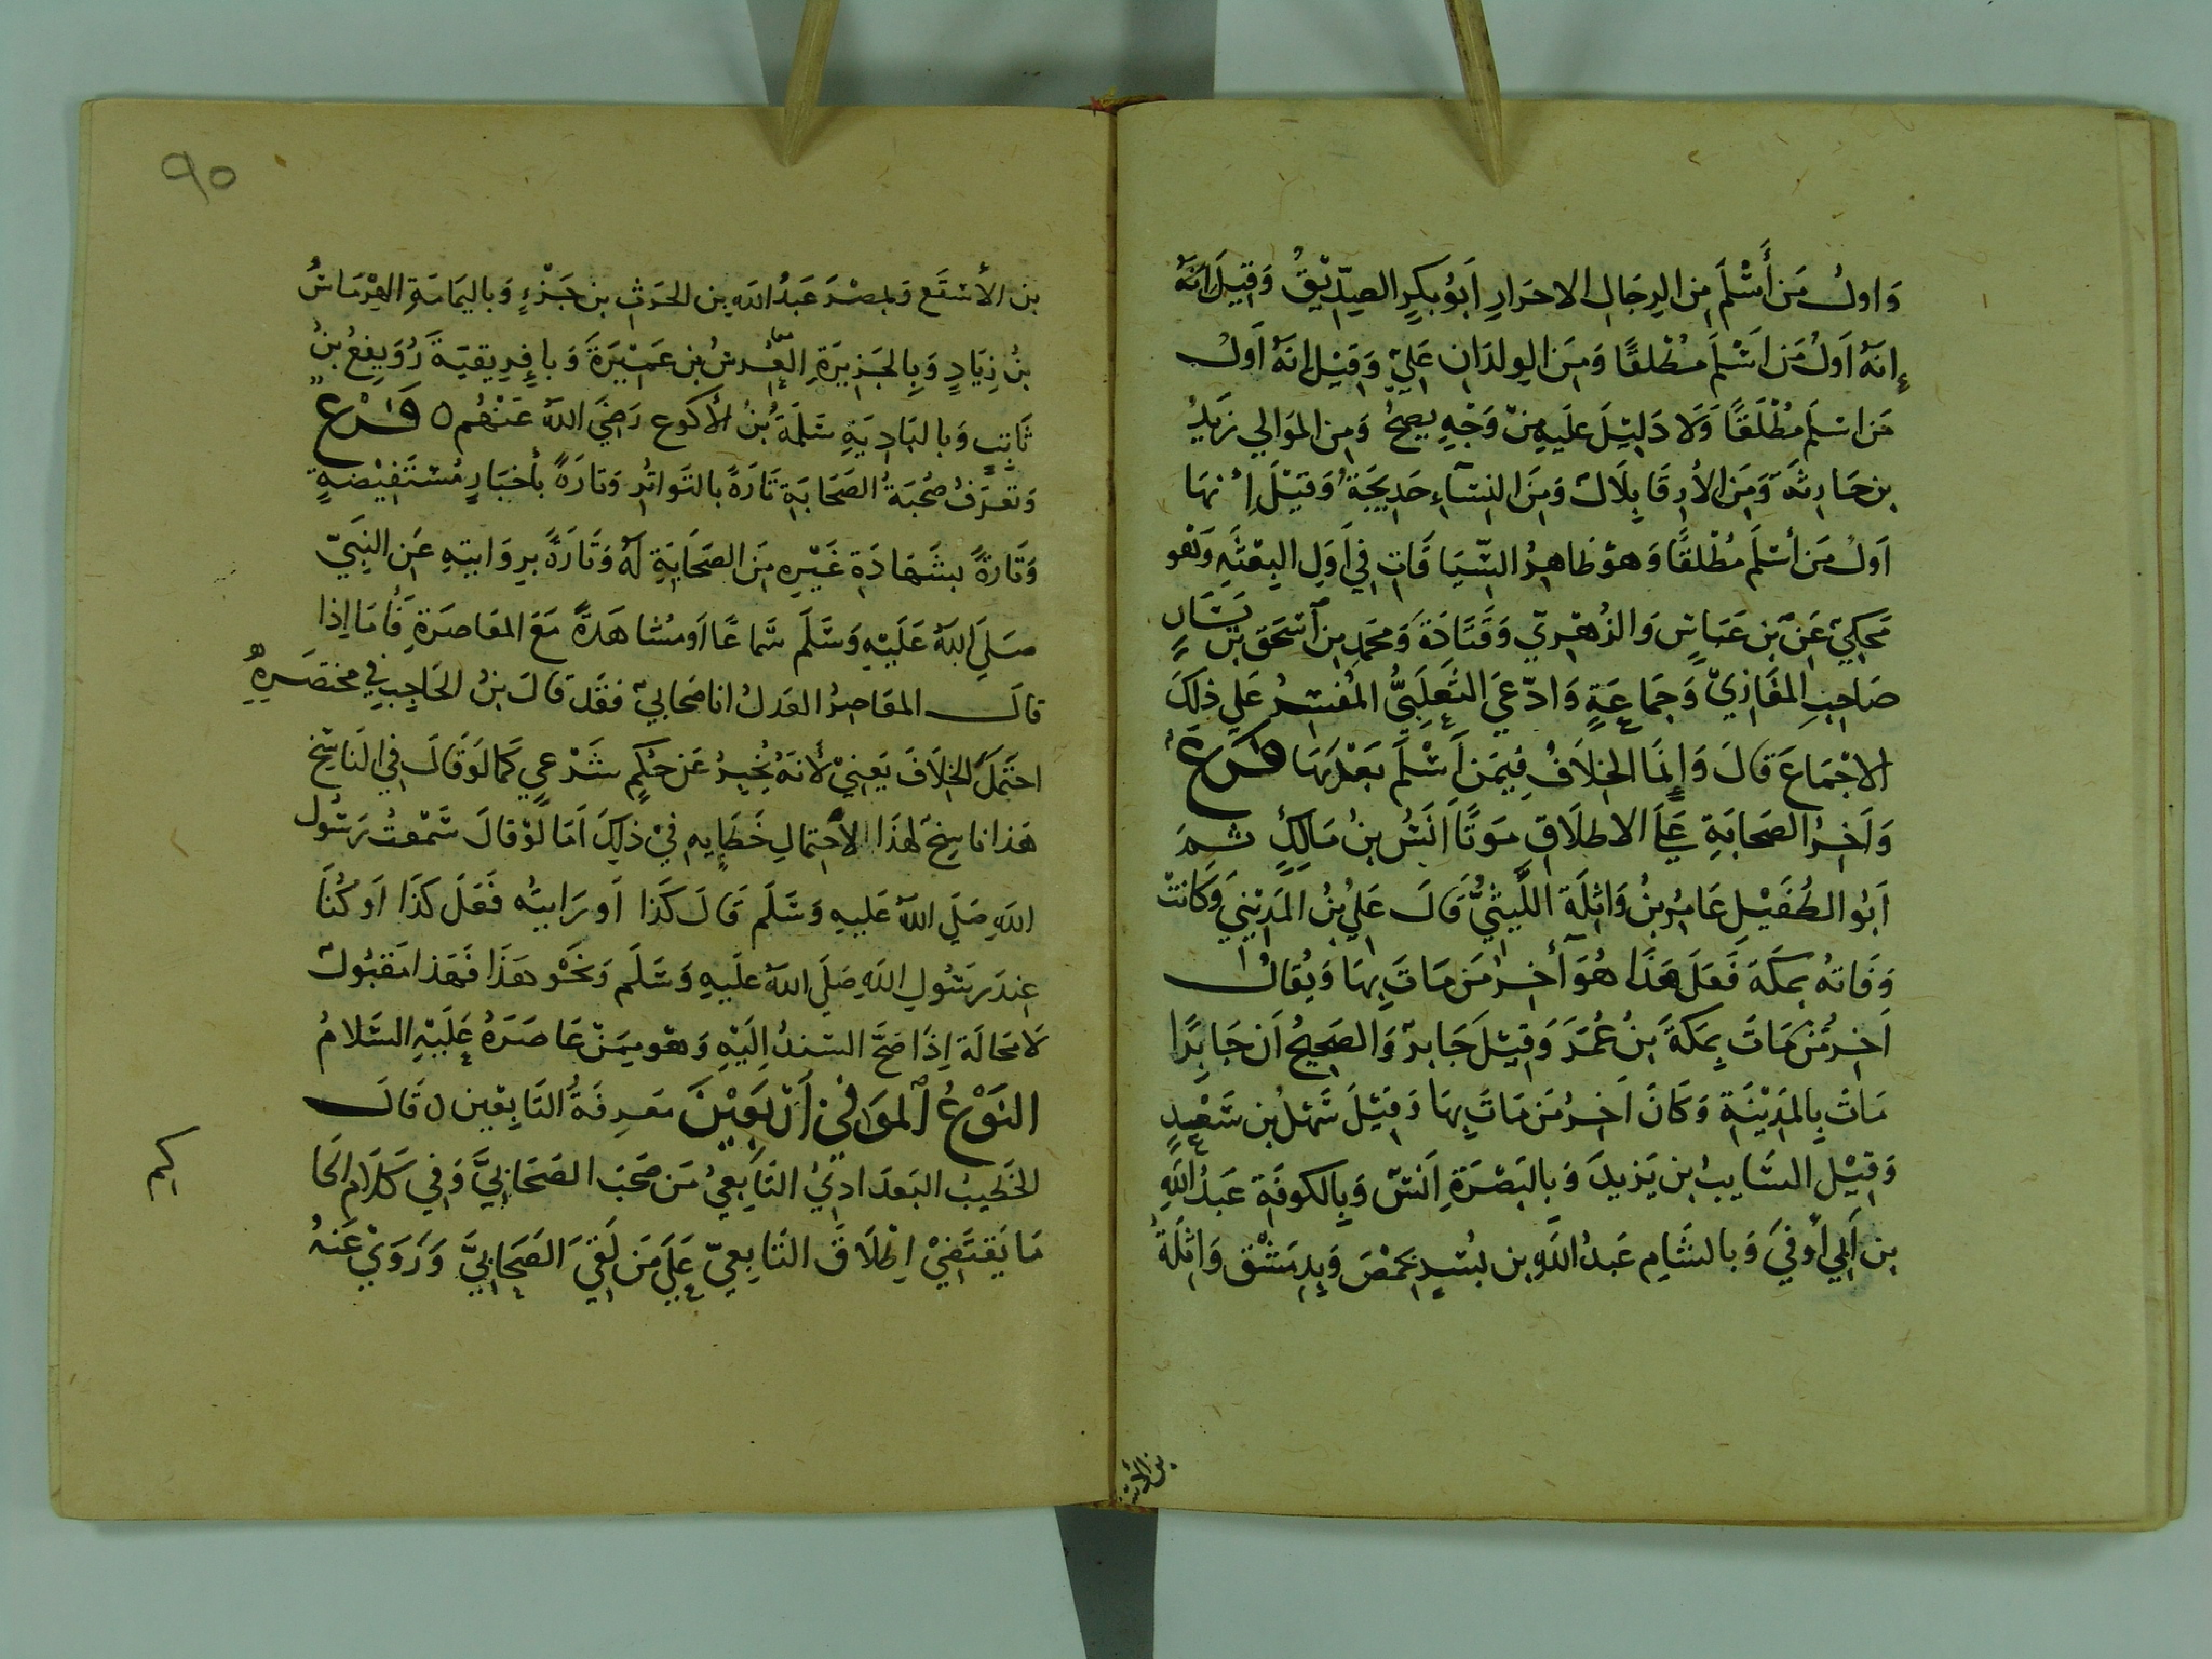 وَاولُ مَن أَسْلَمَ مِن الرِجَالِ الاحرَارِ اَبُو بكرٍ الصِدِّيْقُ وَقِيلَ انَهُ
إنَهُ اَولُ مَن اَسْلَمَ مُطْلقًا وَمِنَ الوِلدَانِ عَليٌ وَقِيْلَ انهُ اَولُ
مَن اسْلَم مُطْلَقًا وَلَا دَلِيْلَ عَلَيهِ مِنْ وَجْهٍ يصحُ وَمِن الموَالِي زَيدُ
بن حَارِثَه وَمِنَ الأرِقَا بِلَال وَمِنَ النِسَآءِ خَدِيجَةُ وَقِيْلَ إنهَا
اَولُ مَن أسْلَم مُطْلقًا وَهوَ ظَاهِرُ السِّيَاقَاتِ فِي اَولِ البِعْثَهِ وَهو
مَحكِيٌ عَنْ بن عَبَاسٍ وَالزُهْرِيّ وَقَتَادَةَ وَمحَمَدِ بن اسْحَق بْن يَسَارٍ
صَاحِبِ المغَازِيْ وَجَمَاعَةٍ وَادّعَي الثَعلَبِيُّ المُفَسِرُ عَلي ذَلِكَ
الاجْمَاعَ قالَ وَإِنمَا الخِلَافُ فِيمَن اَسْلَمَ بَعْدَهَا فَرعُ
وَاَخِرُ الصَحَابَةِ عَلَي الاطلَاقِ مَوتًا اَنَسُ بنُ مَالِكٍ ثم
اَبُو الطُفَيْلِ عَامِرُ بنُ وَاثِلَةَ اللَّيثيُّ قَالَ عَلِيُ بنُ المَدِيْنِي وَكانتْ
وَفَاتهُ بمكَةَ فَعَلَي هَذَا هُوَ أَخِرُ مَن مَاتَ بِهَا وَيُقالُ
اَخِرُ مَنْ مَاتَ بِمَكَةَ بنُ عُمَرَ وَقِيْلَ جَابِرٌ وَالصَحِيحُ اَن جَابِرًا
مَاتَ بِالمَدِيْنَةِ وَكَانَ اَخِرُ مَن مَاتَ بِهَا وَقِيْلَ سَهْلُ بن سَعْدٍ
وَقِيْلَ السَايبُ بن يَزيدَ وَبِالبَصْرَةِ اَنَسٌ وَبِالكوفَةِ عَبدُ اللَهِ
بن اَبِي أَوفيَ وَبالشَامِ عَبدُ اللَهِ بن بُسْرٍ بِحمْصَ وَبِدِمَشْق وَاثِلَةُ
بن الأسقَع
٩٥
بن الأسْقَع وَبمصْرَ عَبدُ اللَهِ بن الحرَثِ بن جَزْءٍ وَباليمَامَةِ الهِرْمَاسُ
بنُ زِيَادٍ وَبِالجَزِيرَةِ العُرسُ بن عَمِيْرَةَ وَبإفرِيقيَةَ رُوَيفِعُ بنُ
ثَابِتٍ وَبالبَادِيَةِ سَلَمَةُ بنُ الأكوَع رَضِيَ اللهُ عَنْهُم ٥ فَرْعُ
وَتعرَفُ صُحْبَةُ الصَحَابَةِ تَارَةً بالتَواتُرِ وَتارَةً بأَخبَارٍ مُسْتَفِيْضَةٍ
وَتَارةً بشَهَادَةِ غَيْرِهِ مِنَ الصَحَابَةِ لَهُ وَتَارَةً برِوَايتِهِ عَنِ النَبِيّ
صَلَي اللهُ عَلَيْهِ وَسَلَم سَماعًا اَو مُشَاهَدَةً مَعَ المعَاصَرَةِ فَأمَا اِذا
قالَ المعَاصِرُ العَدلُ انا صَحابيٌ فقَد قَالَ بنُ الحَاجِبِ فِي مختصَرِهِ
احتَمَلَ الخِلَافَ يَعنِيْ لأنَهُ يُخبِرُ عَن حُكمٍ شَرْعيٍ كَمَا لَو قَالَ فِي النَاسِخ
هَذا ناسِخٌ لهَذَا لاحتِمالِ خَطَايهِ فيْ ذلِكَ اَمَا لَوْ قالَ سَمعتُ رَسُول
اللهِ صَلَي اللهُ عَليهِ وَسَلَم قَالَ كَذَا اَو رَايتُه فَعَلَ كَذَا اَو كُنَا
عِندَ رَسُولِ اللَهِ صَلَي اللهُ عَلَيهِ وَسَلَم وَنَحْو هَذَا فَهَذا مَقبُولٌ
لَا مَحَالَة اِذَا صَحَّ السَندُ اِلَيْهِ وَهو مِمَنْ عَاصَرَهُ عَلَيْهِ السَلامُ
النَوْعُ المُوَافِي اَرْبَعِيْنَ مَعرِفَةُ التَابِعين ٥ قَالَ
الخَطِيبُ البَغدَادِيُ التَابِعِيُ مَن صَحَبَ الصَحَابِيَّ وَفِي كَلَام الحَا
كم
مَا يَقتَضِيْ اِطْلَاقَ التَابِعيّ عَلَي مَن لَقِيَ الصَحَابِيَّ وَرَوَيْ عَنهُ